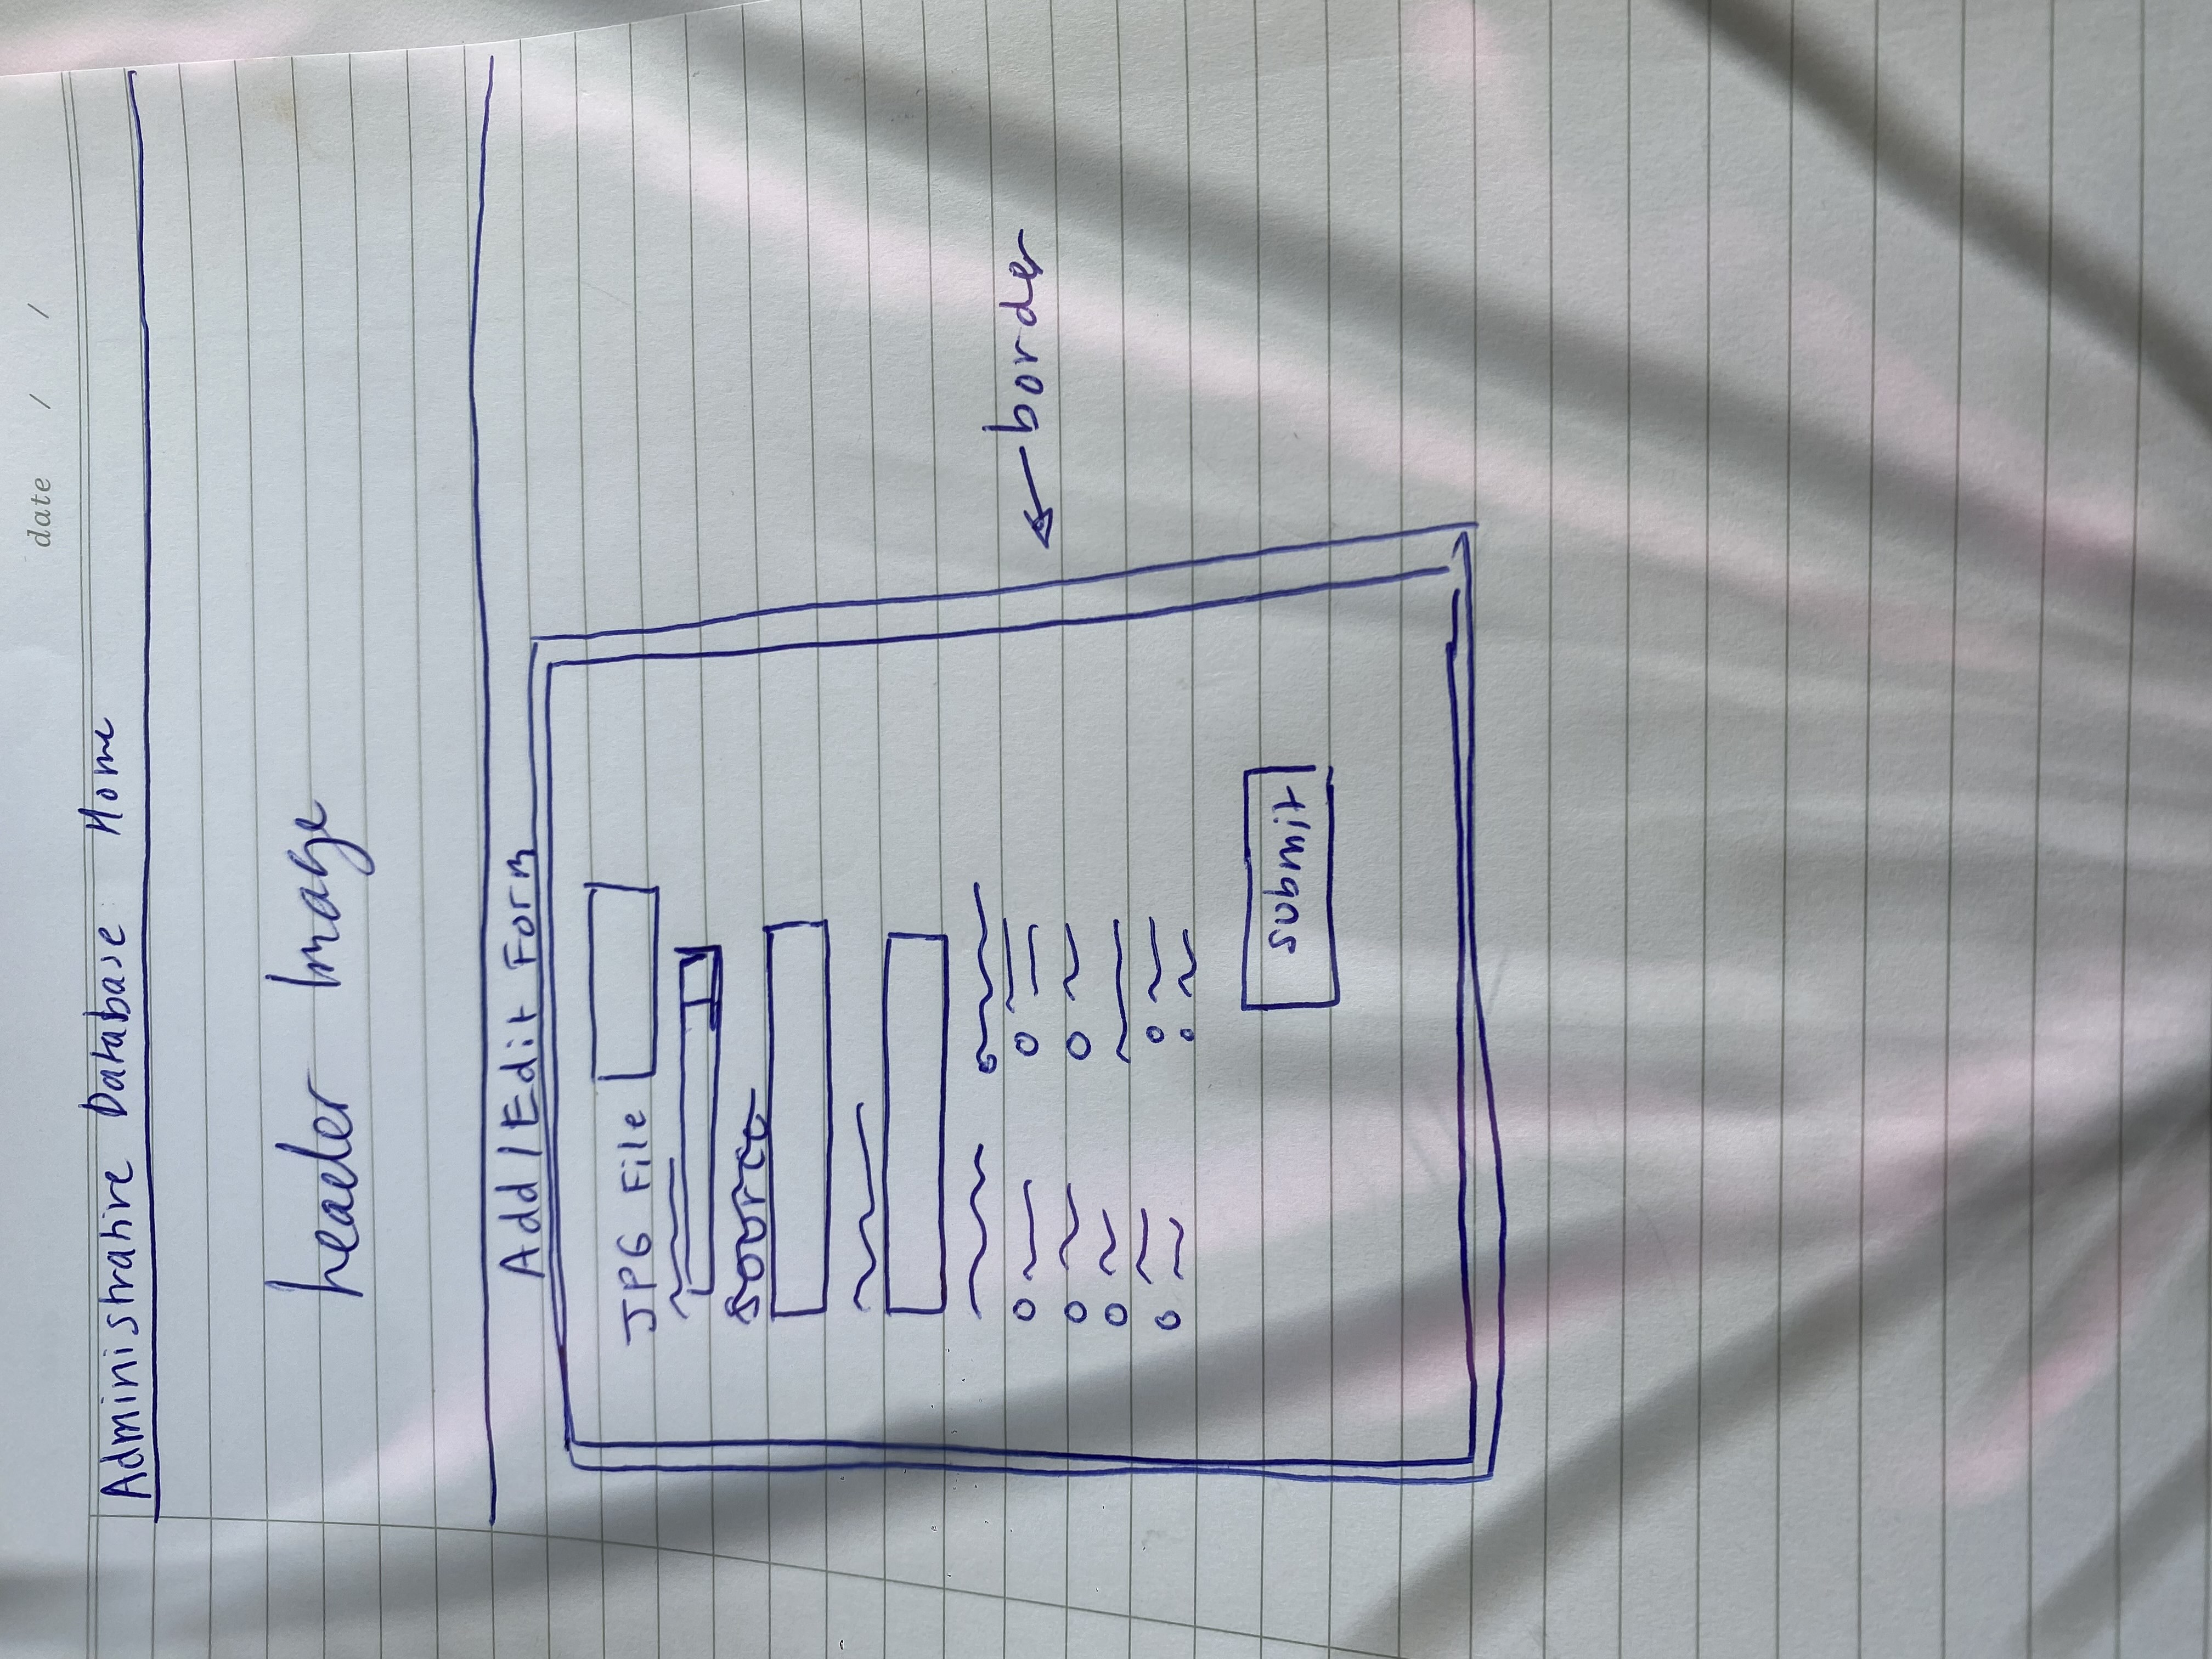 date / /
Administrative Database Home
header Image
Add/Edit Form
JPG File
source
border
submit